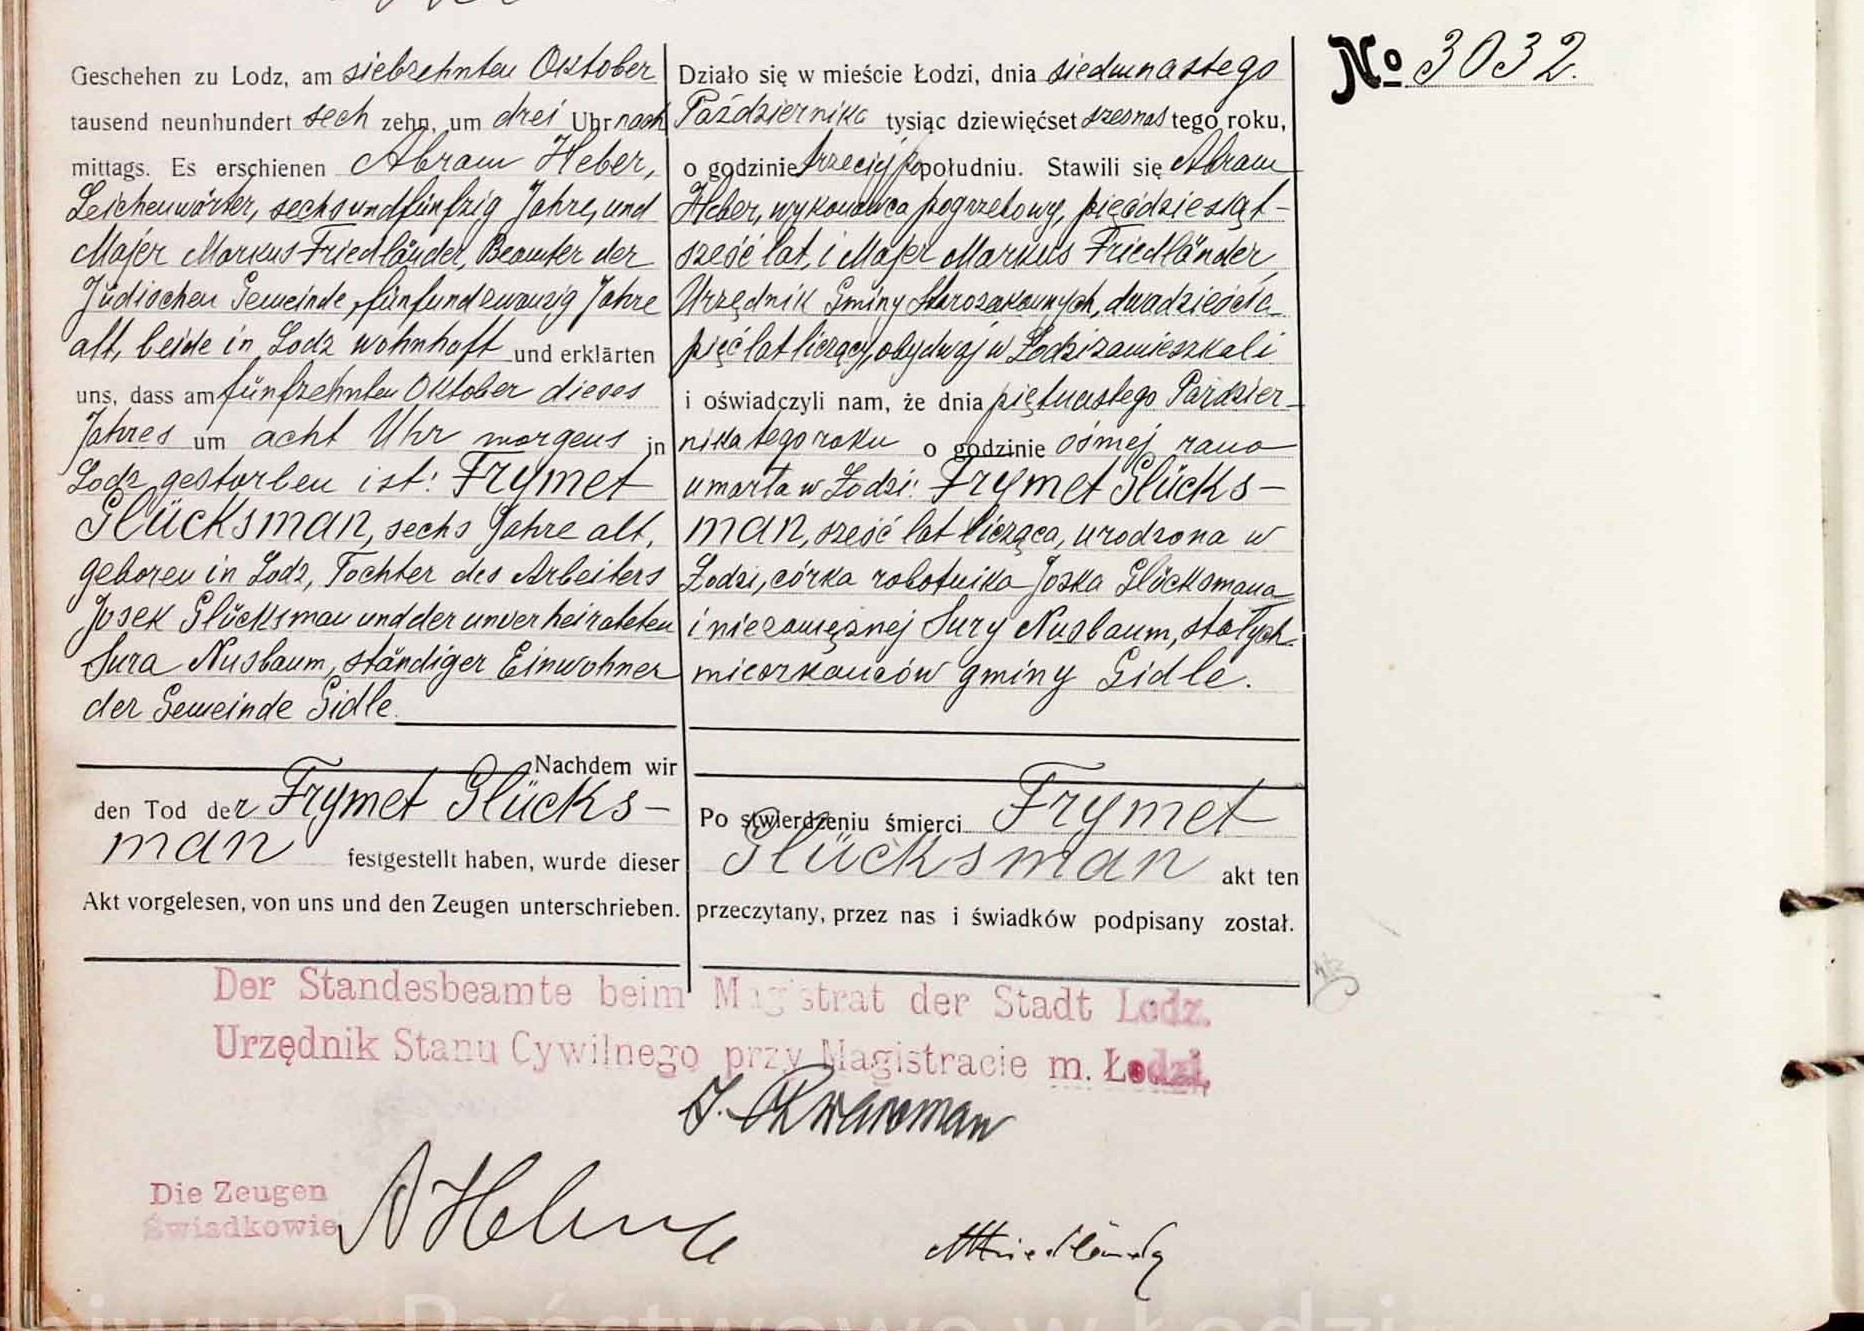 No 3032.
Geschehen zu Lodz, am siebzehnten Oktober
tausend neunhundert sech zehn, um drei Uhr nach
mittags. Es erschienen Abram Heber,
Leichenwärter, sechsundfünfzig Jahre, und
Majer Markus Friedländer, Beamter der
Jüdischen Gemeinde, fünfundzwanzig Jahre
alt, beide in Lodz wohnhaft und erklärten
uns, dass am fünfzehnten Oktober dieses
Jahres um acht Uhr morgens in
Lodz gestorben ist: Frymet
Glücksman, sechs Jahre alt,
geboren in Lodz, Tochter des Arbeiters
Josek Glücksman und der unverheirateten
Sura Nusbaum, ständiger Einwohner
der Gemeinde Gidle.
Nachdem wir
den Tod der Frymet Glücks-
man festgestellt haben, wurde dieser
Akt vorgelesen, von uns und den Zeugen unterschrieben.
Działo się w mieście Łodzi, dnia siedmnastego
Października tysiąc dziewięćset szesnastego roku,
o godzinie trzeciej popołudniu. Stawili się Abram
Heber, wykonawca pogrzebowy, pięćdziesiąt-
sześć lat, i Majer Markus Friedländer,
Urzędnik Gminy Starozakonnych, dwadzieścia
pięć lat liczący, obydwaj w Łodzi zamieszkali
i oświadczyli nam, że dnia piętnastego Paździer-
nika tego roku o godzinie ósmej rano
umarła w Łodzi: Frymet Glücks-
man, sześć lat licząca, urodzona w
Łodzi, córka robotnika Joska Glücksmana
i niezamężnej Sury Nusbaum, stałych
mieszkańców gminy Gidle.
Po stwierdzeniu śmierci Frymet
Glücksman akt ten
przeczytany, przez nas i świadków podpisany został.
Der Standesbeamte beim Magistrat der Stadt Lodz.
Urzędnik Stanu Cywilnego przy Magistracie m. Łodzi.
Die Zeugen
Świadkowie
A Heber
M Friedländer
Archiwum Państwowe w Łodzi